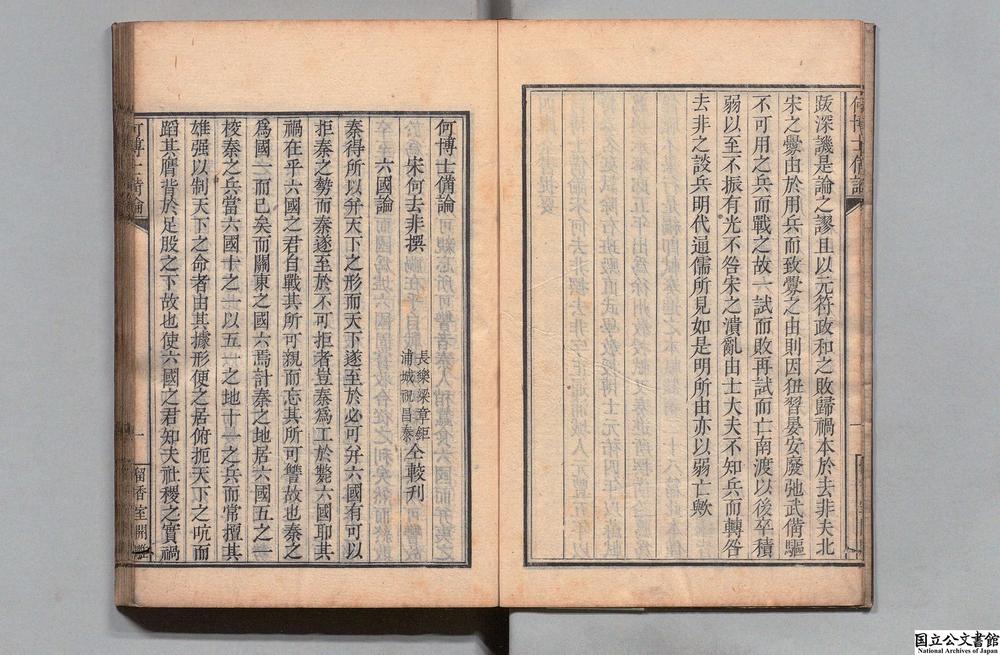 何博士備論
跋深譏是論之謬且以元符政和之敗歸禍本於去非夫北
宋之釁由於用兵而致釁之由則因狃習晏安廢弛武備驅
不可用之兵而戰之故一試而敗再試而亡南渡以後卒積
弱以至不振有光不咎宋之潰亂由士大夫不知兵而轉咎
去非之談兵明代通儒所見如是明所由亦以弱亡歟
何博士備論
宋何去非撰
長樂梁章鉅
浦城祝昌泰
仝較刊
六國論
秦得所以并天下之形而天下遂至於必可并六國有可以
拒秦之勢而秦遂至於不可拒者豈秦為工於斃六國耶其
禍在乎六國之君自戰其所可親而忘其所可讐故也秦之
為國一而已矣而關東之國六焉計秦之地居六國五之一
校秦之兵當六國十之一以五一之地十一之兵而常擅其
雄强以制天下之命者由其據形便之居俯扼天下之吭而
蹈其膺背於足股之下故也使六國之君知夫社稷之實禍
何博士備論
一
留香室開雕
国立公文書館
National Archives of Japan